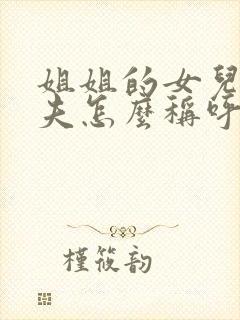 姐姐的女兒
夫怎麼稱呼
槿筱韵